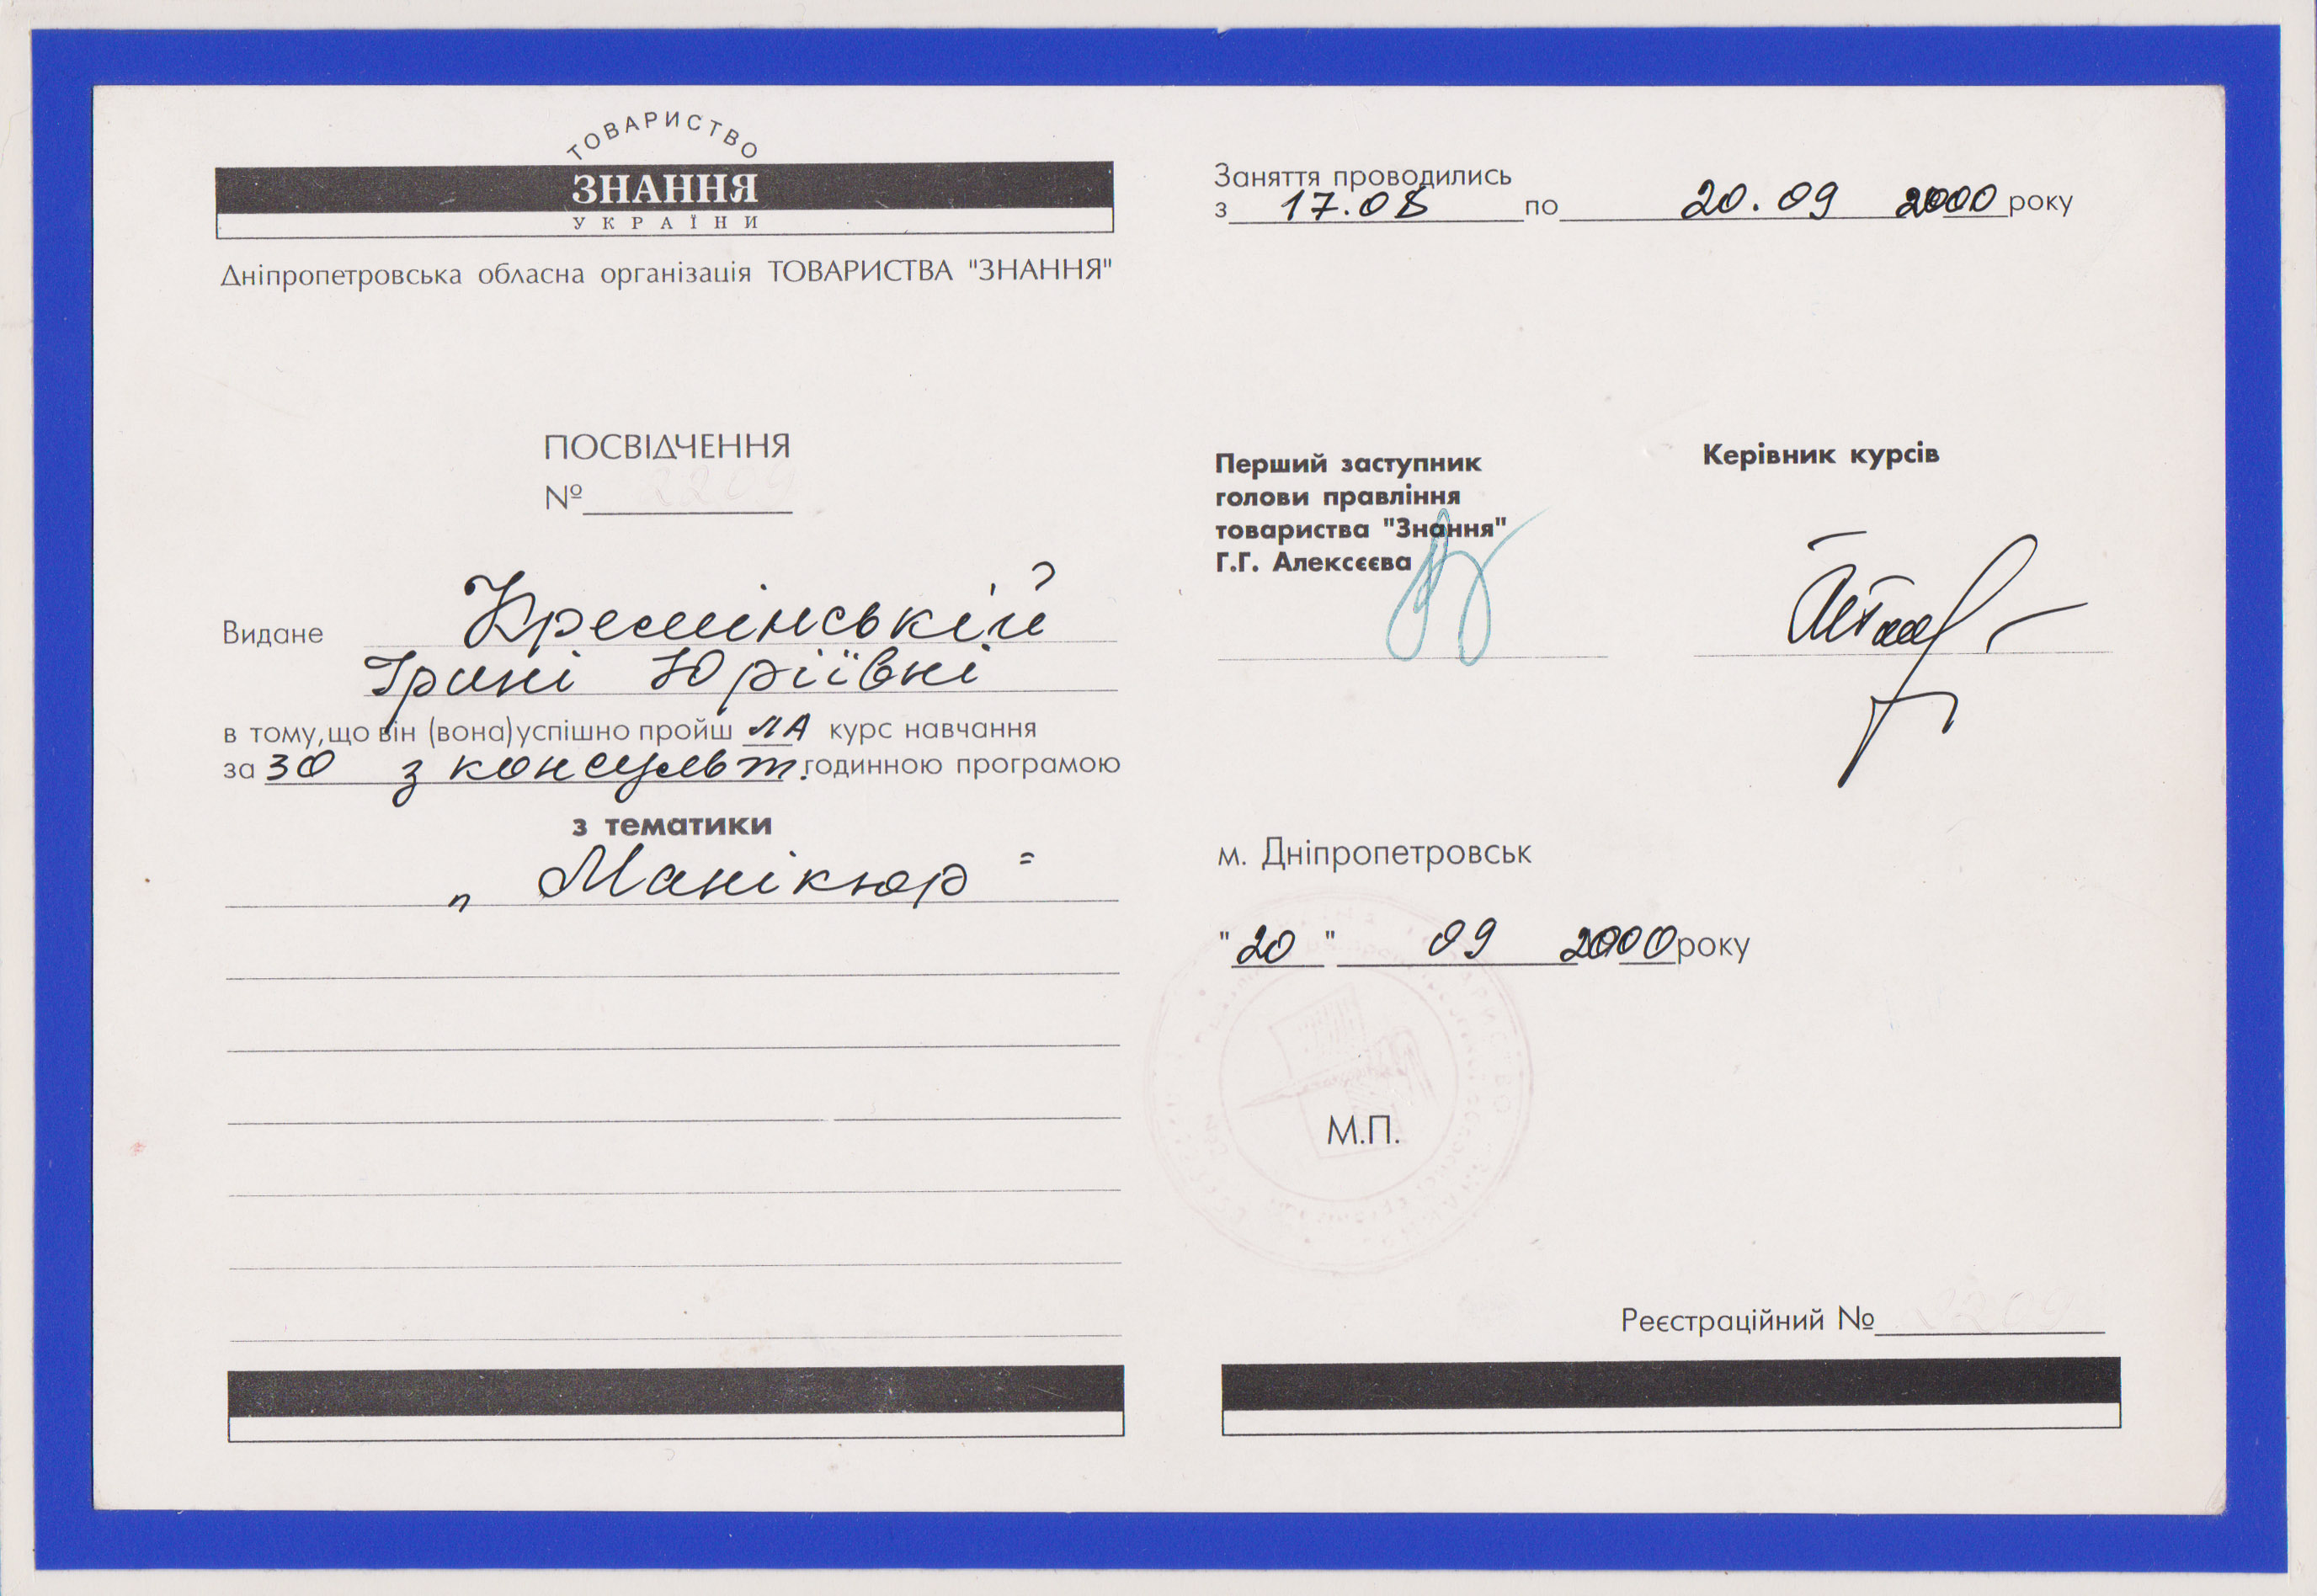 ТОВАРИСТВО
ЗНАННЯ
УКРАЇНИ
Дніпропетровська обласна організація ТОВАРИСТВА "ЗНАННЯ"
ПОСВІДЧЕННЯ
№ 2209
Видане Кремінській
Ірині Юріївні
в тому, що він (вона) успішно пройшла курс навчання
за 30 з консульт. годинною програмою
з тематики
„Манікюр"
Заняття проводились
з 17.08 по 20.09 2000 року
Перший заступник
голови правління
товариства "Знання"
Г.Г. Алексєєва
Керівник курсів
м. Дніпропетровськ
"20" 09 2000 року
М.П.
Реєстраційний № 2209